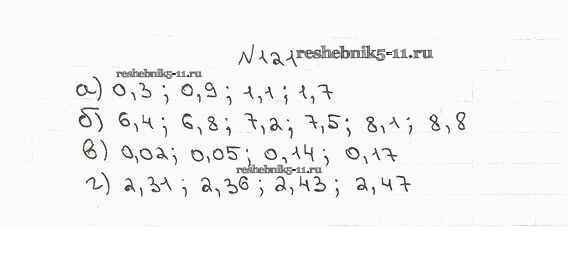 N121 reshebnik5-11.ru
reshebnik5-11.ru
а) 0,3 ; 0,9 ; 1,1 ; 1,7
б) 6,4 ; 6,8 ; 7,2 ; 7,5 ; 8,1 ; 8,8
в) 0,02 ; 0,05 ; 0,14 ; 0,17
reshebnik5-11.ru
г) 2,31 ; 2,36 ; 2,43 ; 2,47